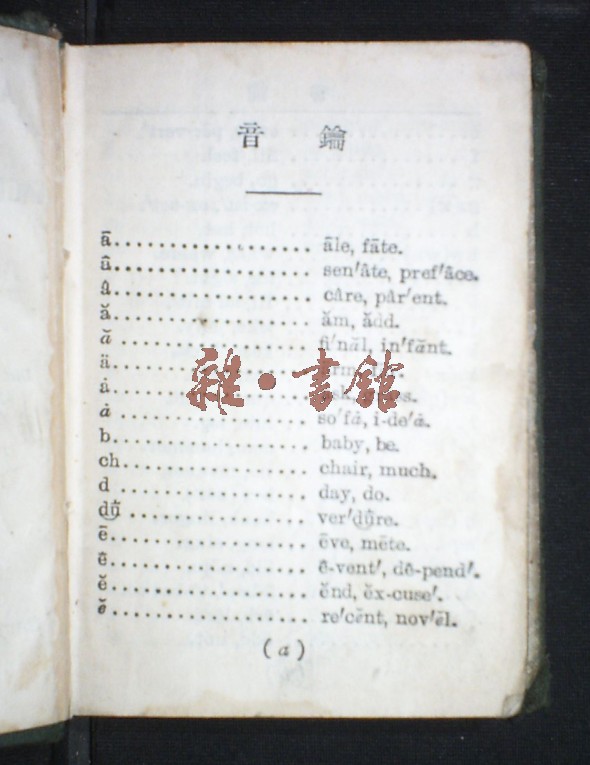 音鑰
ā.................. āle, fāte.
.................. senʹâte, prefʹâce.
â.................. câre, pârʹent.
ă.................. ăm, ădd.
ă.................. fīʹnăl, inʹfănt.
ä..................
ȧ..................
ȧ.................. soʹfȧ, i-deʹȧ.
b.................. baby, be.
ch.................. chair, much.
d.................. day, do.
.................. verʹ
ē.................. ēve, mēte.
.................. ventʹ, pendʹ.
ĕ.................. ĕnd, ĕx-cuseʹ.
ĕ.................. reʹcĕnt, novʹĕl.
(a)
雜•書館